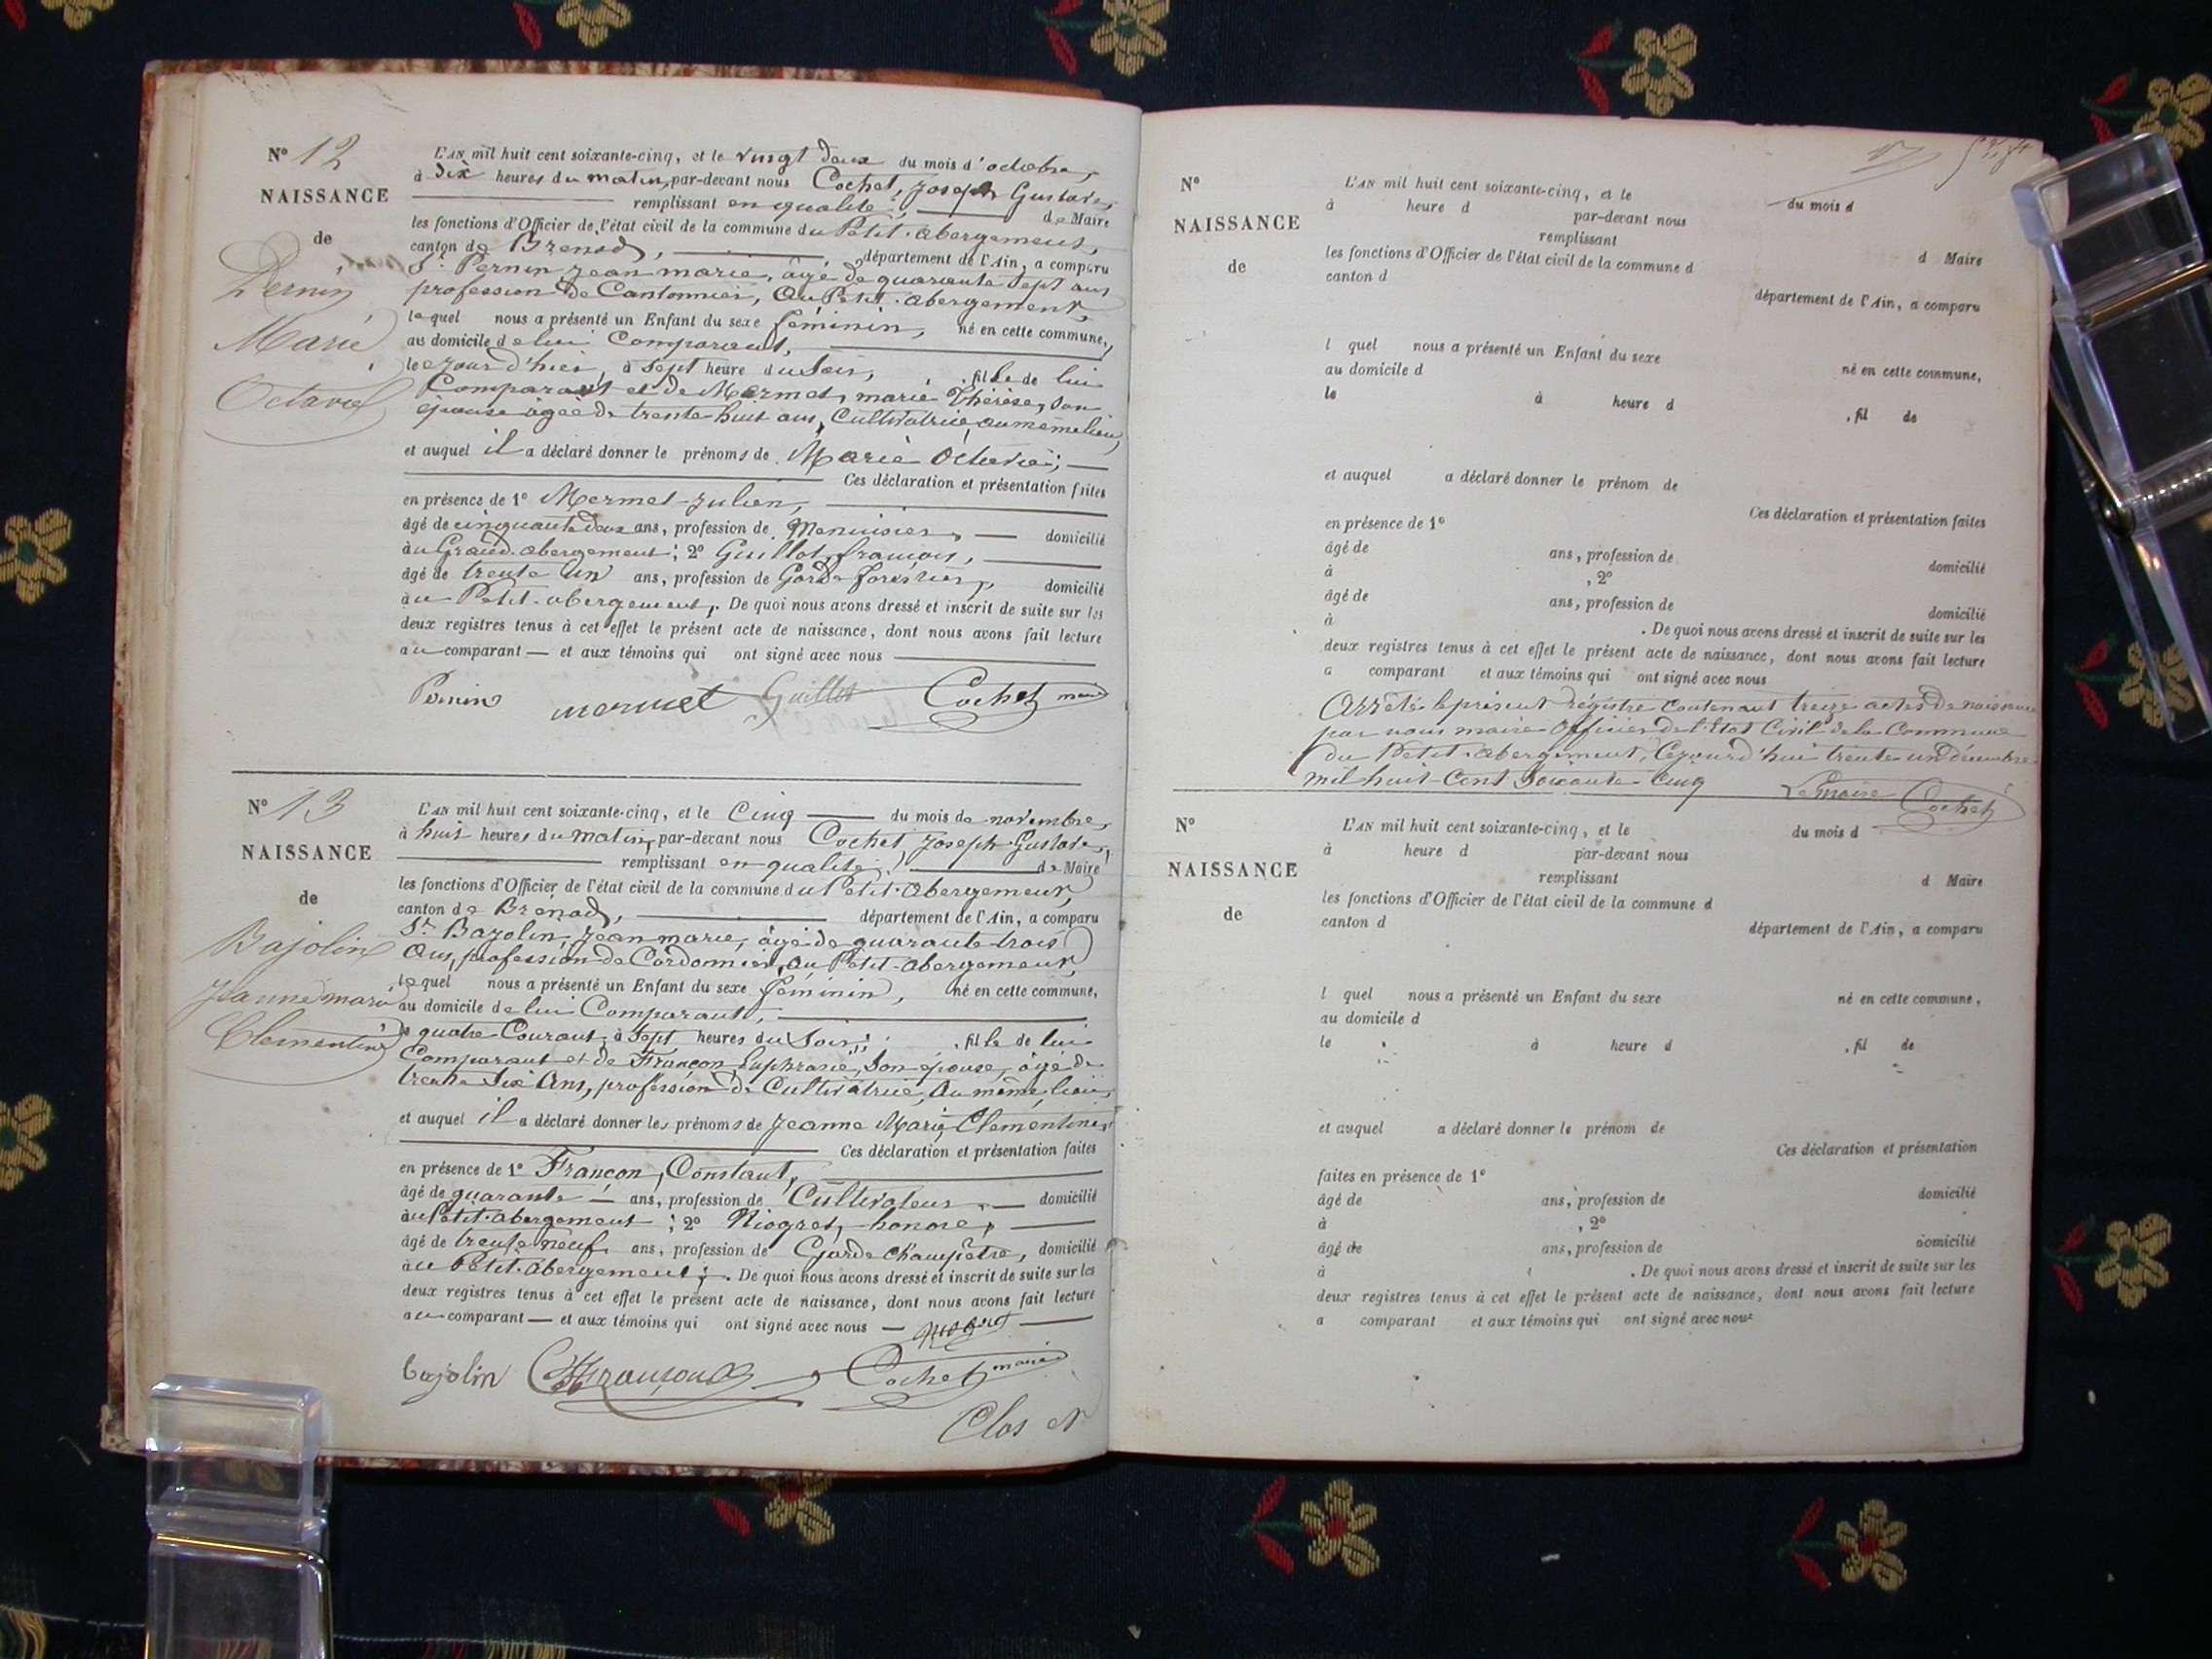 N° 12
NAISSANCE
de
Pernin
Marie
Octavie
L'AN mil huit cent soixante-cinq, et le vingt deux du mois d'octobre,
à dix heures du matin, par-devant nous Cochet, Joseph Gustave,
remplissant en qualité de Maire
les fonctions d'Officier de l'état civil de la commune du Petit-abergement,
canton de Brénod, département de l'Ain, a comparu
Sr Pernin Jean marie, âgé de quarante sept ans
profession de Cantonnier, Au Petit-abergement,
lequel nous a présenté un Enfant du sexe féminin, né en cette commune,
au domicile de lui Comparant,
le jour d'hier, à sept heure du Soir, fille de lui
Comparant et de Mermet, marie Thérèse, son
épouse âgée de trente huit ans, Cultivatrice, au même lieu,
et auquel il a déclaré donner le prénoms de Marie Octavie;
Ces déclaration et présentation faites
en présence de 1° Mermet Julien,
âgé de cinquante deux ans, profession de Menuisier, domicilié
au Grand-abergement; 2° Guillot, françois,
âgé de trente un ans, profession de Garde forestier, domicilié
au Petit-abergement,. De quoi nous avons dressé et inscrit de suite sur les
deux registres tenus à cet effet le présent acte de naissance, dont nous avons fait lecture
au comparant — et aux témoins qui ont signé avec nous
Pernin mermet Guillot Cochet maire
N° 13
NAISSANCE
de
Bajolin
Jeanne marie
Clementine
L'AN mil huit cent soixante-cinq, et le Cinq du mois de novembre,
à huit heures du matin, par-devant nous Cochet, Joseph Gustave,
remplissant en qualité de Maire
les fonctions d'Officier de l'état civil de la commune du Petit-Abergement,
canton de Brénod, département de l'Ain, a comparu
Sr Bajolin, Jean marie, âgé de quarante trois
Ans, profession de Cordonnier, Au Petit-Abergement,
lequel nous a présenté un Enfant du sexe féminin, né en cette commune,
au domicile de lui Comparant,
le quatre Courant, à Sept heures du Soir; fille de lui
Comparant et de Françon Euphrasie, Son épouse, âgé de
trente Six Ans, profession de Cultivatrice, Au même lieu,
et auquel il a déclaré donner les prénoms de Jeanne Marie Clementine,
Ces déclaration et présentation faites
en présence de 1° Françon, Constant,
âgé de quarante — ans, profession de Cultivateur, — domicilié
au Petit-abergement; 2° Niogret, honoré,
âgé de trente neuf ans, profession de Garde Champêtre, domicilié
au Petit-Abergement;. De quoi nous avons dressé et inscrit de suite sur les
deux registres tenus à cet effet le présent acte de naissance, dont nous avons fait lecture
au comparant — et aux témoins qui ont signé avec nous —
bajolin Françon Cochet maire
Clos
N°
NAISSANCE
de
L'AN mil huit cent soixante-cinq, et le du mois d
à heure d par-devant nous
remplissant d Maire
les fonctions d'Officier de l'état civil de la commune d
canton d département de l'Ain, a comparu
l quel nous a présenté un Enfant du sexe né en cette commune,
au domicile d
le à heure d , fil de
et auquel a déclaré donner le prénom de
Ces déclaration et présentation faites
en présence de 1°
âgé de ans, profession de domicilié
à , 2°
âgé de ans, profession de domicilié
à . De quoi nous avons dressé et inscrit de suite sur les
deux registres tenus à cet effet le présent acte de naissance, dont nous avons fait lecture
a comparant et aux témoins qui ont signé avec nous
Arrêté le présent régistre contenant treize actes de naissance
par nous maire officier de l'Etat Civil de la Commune
du Petit-abergement, Cejourd'hui trente un décembre
mil huit-Cent Soixante-Cinq Le maire Cochet
N°
NAISSANCE
de
L'AN mil huit cent soixante-cinq, et le du mois d
à heure d par-devant nous
remplissant d Maire
les fonctions d'Officier de l'état civil de la commune d
canton d département de l'Ain, a comparu
l quel nous a présenté un Enfant du sexe né en cette commune,
au domicile d
le à heure d , fil de
et auquel a déclaré donner le prénom de
Ces déclaration et présentation
faites en présence de 1°
âgé de ans, profession de domicilié
à , 2°
âgé de ans, profession de domicilié
à . De quoi nous avons dressé et inscrit de suite sur les
deux registres tenus à cet effet le présent acte de naissance, dont nous avons fait lecture
a comparant et aux témoins qui ont signé avec nous